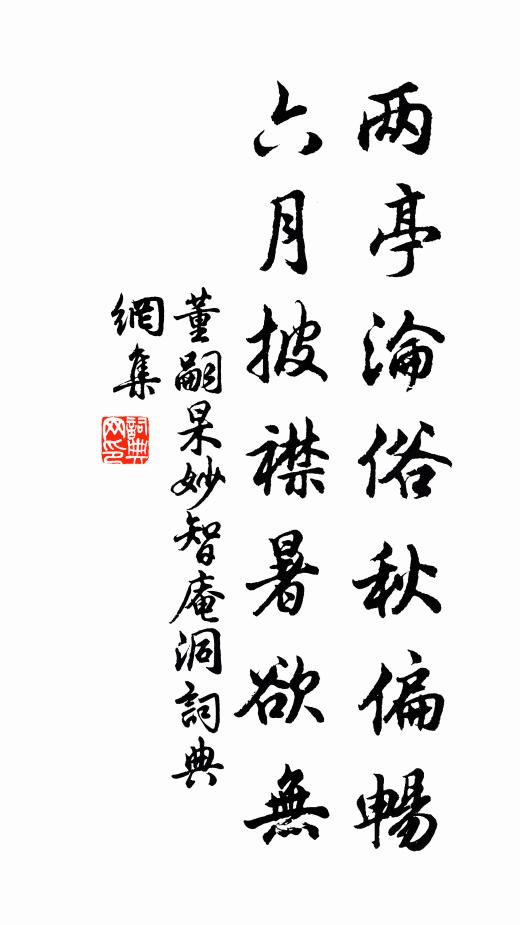 两亭淪俗秋偏暢
六月披襟暑欲無
董嗣杲妙智庵洞詞典
網集
詞典网印